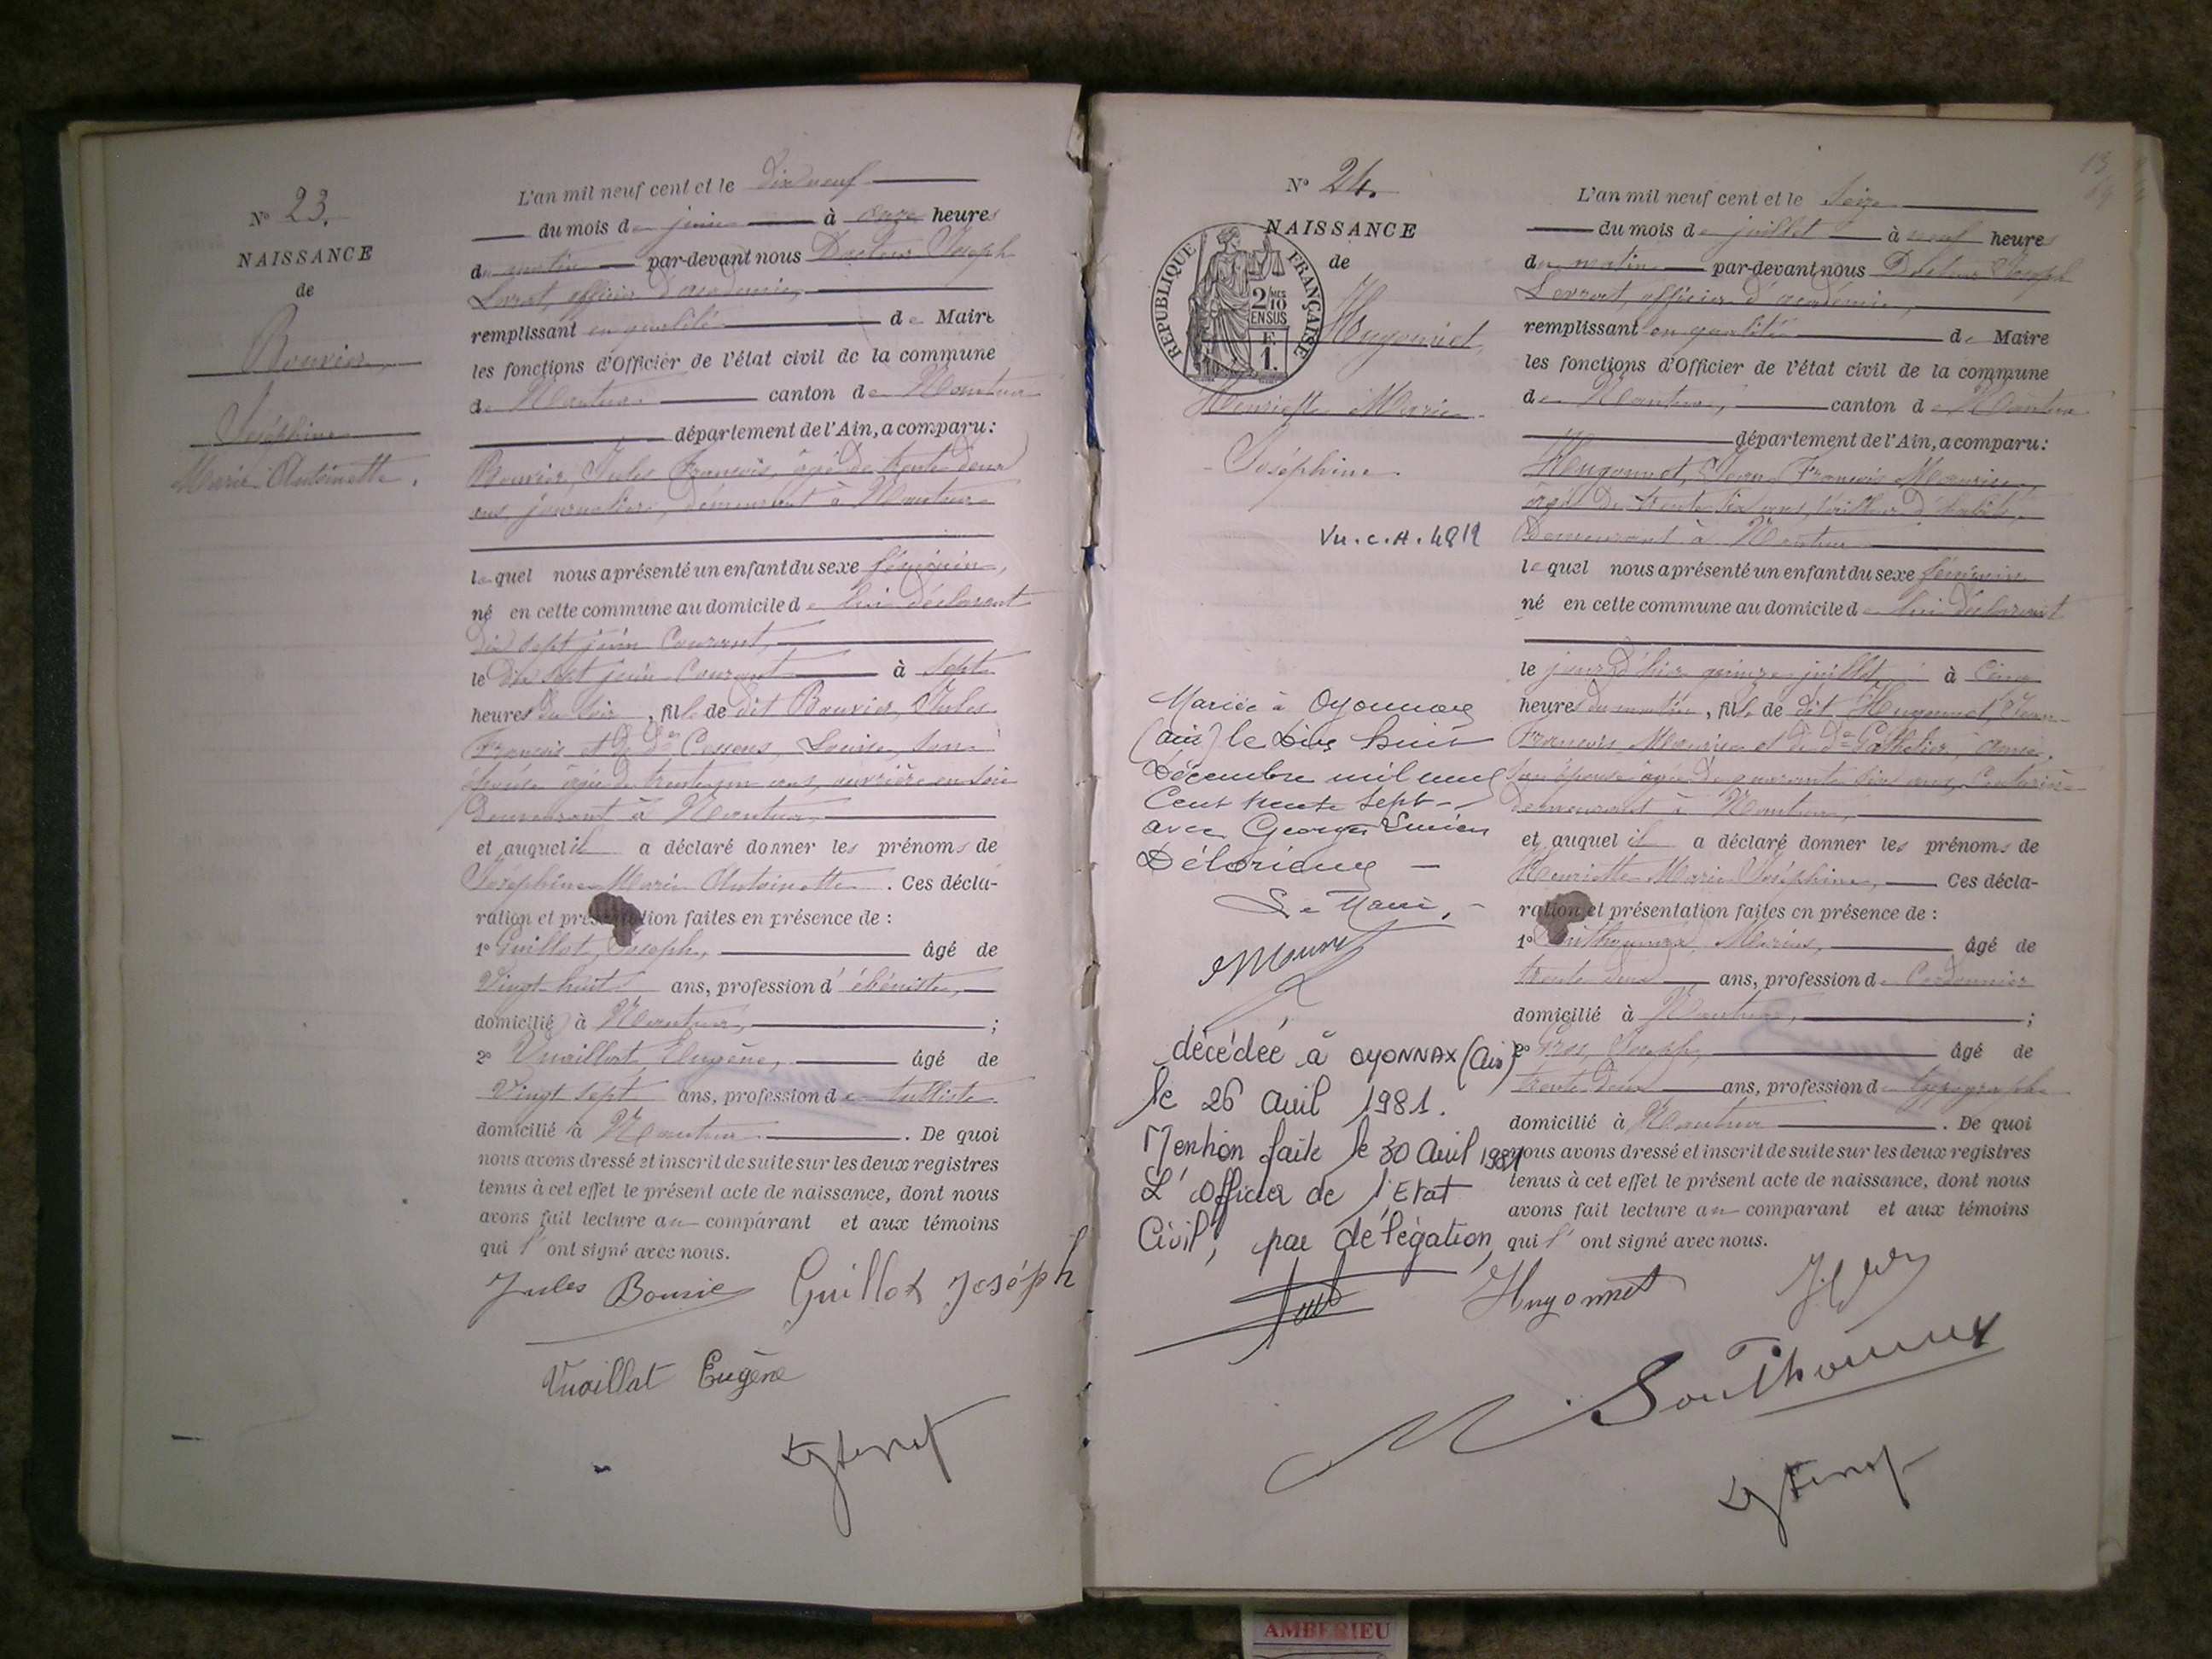 N° 23.
NAISSANCE
de
Bouvier,
Joséphine
Marie Antoinette.
L'an mil neuf cent et le Dix neuf
du mois de juin à onze heures
du matin par-devant nous Docteur Joseph
officier d'académie,
remplissant en qualité de Maire
les fonctions d'Officier de l'état civil de la commune
de Nantua canton de Nantua
département de l'Ain, a comparu :
Bouvier, Jules François, âgé de trente deux
ans, journalier, demeurant à Nantua
lequel nous a présenté un enfant du sexe féminin,
né en cette commune au domicile de lui déclarant
dix sept juin Courant,
le dix sept juin Courant à sept
heures du soir, fille de dit Bouvier, Jules
François et de dᵉ Louise, son
épouse âgée de trente un ans, ouvrière en soie
demeurant à Nantua,
et auquel il a déclaré donner les prénoms de
Joséphine Marie Antoinette. Ces décla-
ration et présentation faites en présence de :
1° Guillot, Joseph, âgé de
Vingt huit ans, profession d'ébéniste,
domicilié à Nantua, ;
2° Vuaillat, Eugène, âgé de
Vingt sept ans, profession de tulliste
domicilié à Nantua. De quoi
nous avons dressé et inscrit de suite sur les deux registres
tenus à cet effet le présent acte de naissance, dont nous
avons fait lecture au comparant et aux témoins
qui l'ont signé avec nous.
Jules Bouvie Guillot Joséph
Vuaillat Eugène
N° 24.
NAISSANCE
de
RÉPUBLIQUE FRANÇAISE
2 MES
10
EN SUS
F.
1.
Hugonnet,
Henriette Marie
Joséphine.
Vu. c. A. 4812
Mariée à Oyonnax
(ain) le dix huit
Décembre mil neuf
Cent trente sept
avec Georges Lucien
Délorieux
Le Maire,
décédée à OYONNAX (Ain)
le 26 avril 1981.
Mention faite le 30 Avril 1981
L'officier de l'Etat
Civil, par délégation,
L'an mil neuf cent et le Seize
du mois de juillet à neuf heures
du matin par-devant nous Docteur Joseph
officier d'académie,
remplissant en qualité de Maire
les fonctions d'Officier de l'état civil de la commune
de Nantua, canton de Nantua
département de l'Ain, a comparu :
Hugonnet, Jean François Maurice,
âgé de trente six ans, tailleur d'habits,
Demeurant à Nantua
lequel nous a présenté un enfant du sexe féminin
né en cette commune au domicile de lui déclarant
le jour d'hier quinze juillet à Cinq
heures du matin, fille de dit Hugonnet, Jean
François Maurice et de dᵉ Gathelier,
son épouse âgée de quarante six ans, Couturière
demeurant à Nantua,
et auquel il a déclaré donner les prénoms de
Henriette Marie Joséphine, Ces décla-
ration et présentation faites en présence de :
1° Marius, âgé de
trente deux ans, profession de Cordonnier
domicilié à Nantua, ;
2° Gros, Joseph, âgé de
trente deux ans, profession de typographe
domicilié à Nantua. De quoi
nous avons dressé et inscrit de suite sur les deux registres
tenus à cet effet le présent acte de naissance, dont nous
avons fait lecture au comparant et aux témoins
qui l'ont signé avec nous.
Hugonnet
AMBERIEU